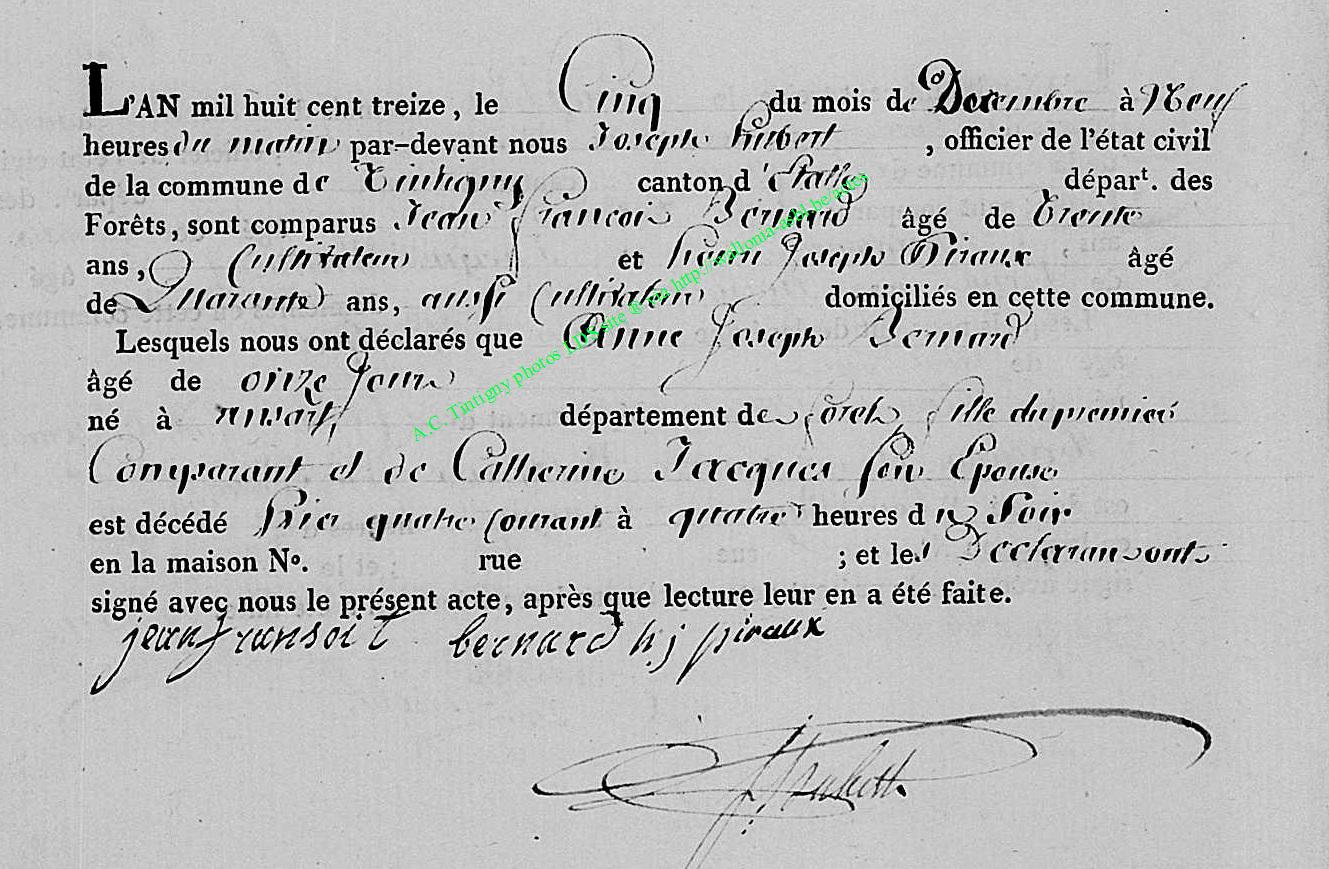 L'AN mil huit cent treize, le Cinq du mois de Decembre à Neuf
heures du matin par-devant nous Joseph hubert, officier de l'état civil
de la commune de Tintigny canton d'Etalle, départ. des
Forêts, sont comparus Jean françois Bernard âgé de trente
ans, Cultivateur et henri Joseph Piraux âgé
de Quarante ans, aussi Cultivateur domiciliés en cette commune.
Lesquels nous ont déclarés que Anne Joseph Bernard
âgé de onze jours
né à ansart département de forets, fille du premier
Comparant et de Catherine Jacques son Epouse
est décédé hier quatre courant à quatre heures du Soir
en la maison No. rue ; et les Declarans ont
signé avec nous le présent acte, après que lecture leur en a été faite.
jean fransoit bernard h j piraux
J hubert
A.C. Tintigny photos LDS site ® via http://wallonia-asbl.be/actes